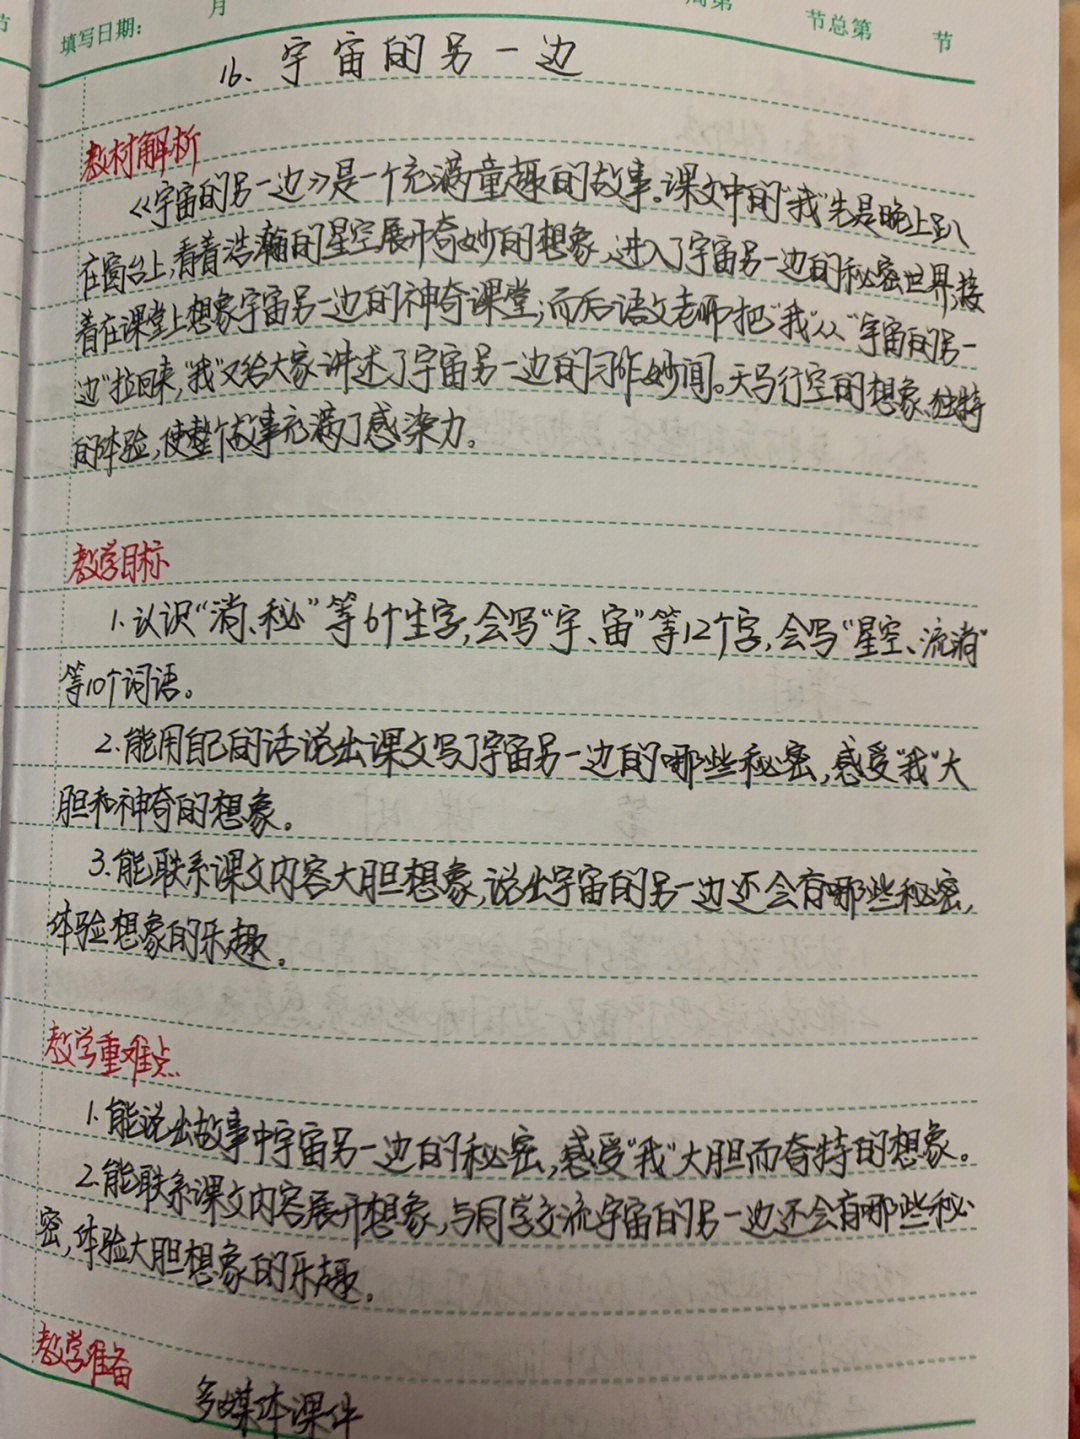 填写日期: 月 周第 节总第 节
16、宇宙的另一边
教材解析
《宇宙的另一边》是一个充满童趣的故事。课文中的“我”先是晚上趴
在窗台上,看着浩瀚的星空展开奇妙的想象,进入了宇宙另一边的秘密世界,接
着在课堂上想象宇宙另一边的神奇课堂;而后语文老师把“我”从“宇宙的另一
边”拉回来,“我”又给大家讲述了宇宙另一边的习作妙闻。天马行空的想象,独特
的体验,使整个故事充满了感染力。
教学目标
1.认识“淌、秘”等6个生字,会写“宇、宙”等12个字,会写“星空、流淌”
等10个词语。
2.能用自己的话说出课文写了宇宙另一边的哪些秘密,感受“我”大
胆和神奇的想象。
3.能联系课文内容大胆想象,说出宇宙的另一边还会有哪些秘密,
体验想象的乐趣。
教学重难点
1.能说出故事中宇宙另一边的秘密,感受“我”大胆而奇特的想象。
2.能联系课文内容展开想象,与同学交流宇宙的另一边还会有哪些秘
密,体验大胆想象的乐趣。
教学准备
多媒体课件